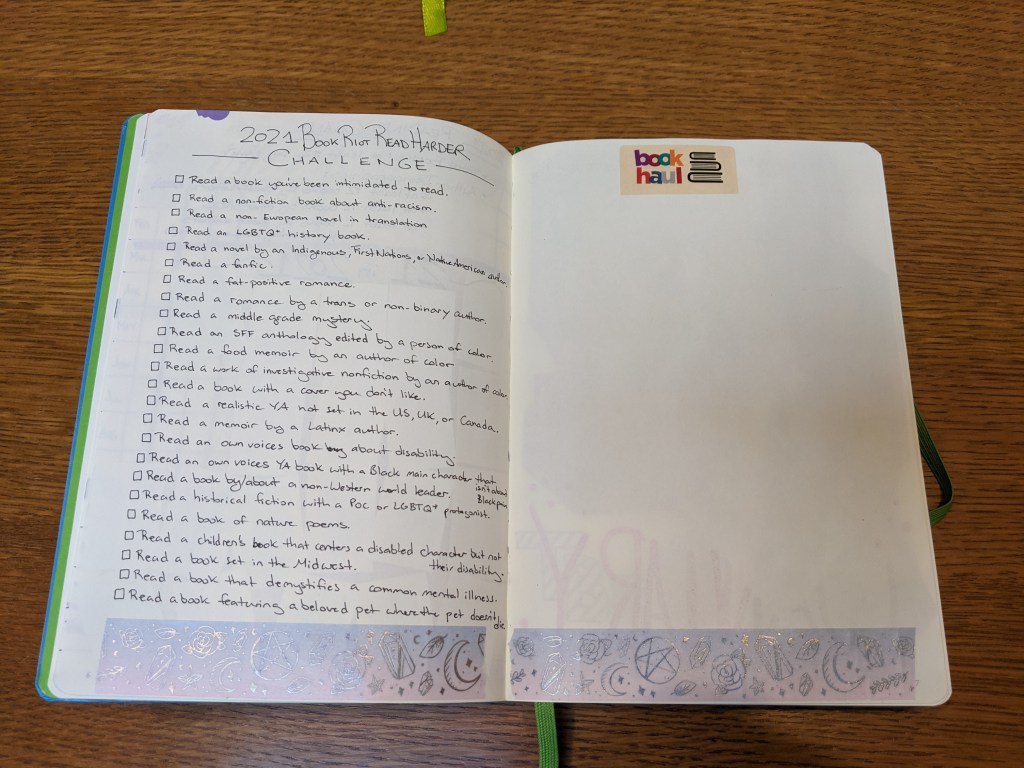 2021 Book Riot Read Harder
Challenge
Read a book you've been intimidated to read.
Read a non-fiction book about anti-racism.
Read a non-European novel in translation
Read an LGBTQ+ history book.
Read a novel by an Indigenous, First Nations, or Native American author.
Read a fanfic.
Read a fat-positive romance.
Read a romance by a trans or non-binary author.
Read a middle grade mystery.
Read an SFF anthology edited by a person of color.
Read a food memoir by an author of color
Read a work of investigative nonfiction by an author of color
Read a book with a cover you don't like.
Read a realistic YA not set in the US, UK, or Canada.
Read a memoir by a Latinx author.
Read an own voices book about disability.
Read an own voices YA book with a Black main character that
isn't about
Black pain
Read a book by/about a non-Western world leader.
Read a historical fiction with a POC or LGBTQ+ protagonist.
Read a book of nature poems.
Read a children's book that centers a disabled character but not
their disability.
Read a book set in the Midwest.
Read a book that demystifies a common mental illness.
Read a book featuring a beloved pet where the pet doesn't
die.
book
haul